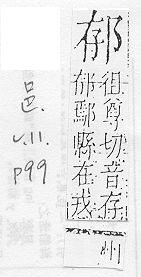 徂尊切音存
鄢縣在戎
州
邑.
v.11.
p99